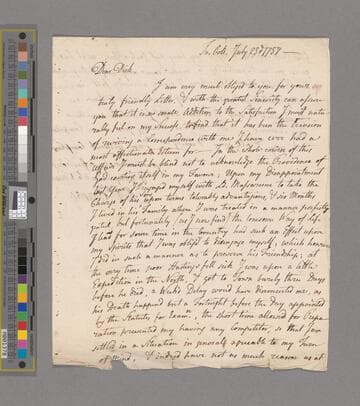 Tr. Coll. July 23d 1757 —
Dear Dick.
I am very much obliged to you for yours
truly friendly Letter, & with the greatest sincerity can assure
you that it was no small Addition to the Satisfaction I most natu-
rally feel on my success to find that it has been the Occasion
of reviving a Correspondence with one I have ever had a
most affectionate Esteem for. — In the whole course of this
affair I must be blind not to acknowledge the Providence of
God exerting itself in my Favour; Upon my Disappointment
last Year I engaged myself with Ld. Massereene to take the
Charge of his upon terms tolerably advantageous, & six Months
I lived in his Family where I was treated in a manner perfectly
polite but fortunately (as I now find) the lonesome Way of life
I led for some time in the Country had such an Effect upon
my Spirits that I was obliged to disengage myself, which however
I did in such a manner as to preserve his Friendship; at
the very time poor Hastings fell sick I was upon a little
Expedition in the North, I got to Town barely three Days
before he died, a Weeks Delay would have disconcerted me, as
his Death happened but a Fortnight before the Day appointed
by the Statutes for Examn., the short time allowed for Prepa-
ration prevented my having any Competitor, so that I am
settled in a Situation in general agreeable to my Turn
of Mind, & indeed have not so much reason as at